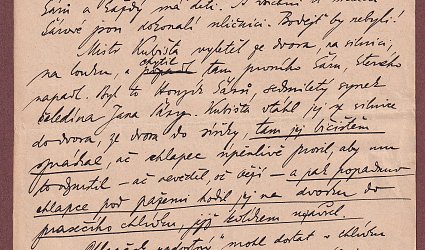 Sárů a každý má děti. A všichni ti malí
Šárové jsou dokonalí uličníci. Bodejť by nebyli!
Mistr Kubišta vyletěl ze dvora, na silnici,
na louku, a chytil tam prvního Šáru, kterého
napadl. Byl to Honzík Šárů, sedmiletý synek
Jana Šáry. Kubišta vtáhl jej ze silnice
do dvora, ze dvora do síňky, tam jej bičištěm
spráskal, ač chlapec úpěnlivě prosil, aby mu
to odpustil – ač nevěděl, oč běží – a pak popadnuv
chlapce pod pažemi hodil jej na dvorku do
prasečího chlívku, jejž kolíkem zapíchl.
mohl dostat z chlívku